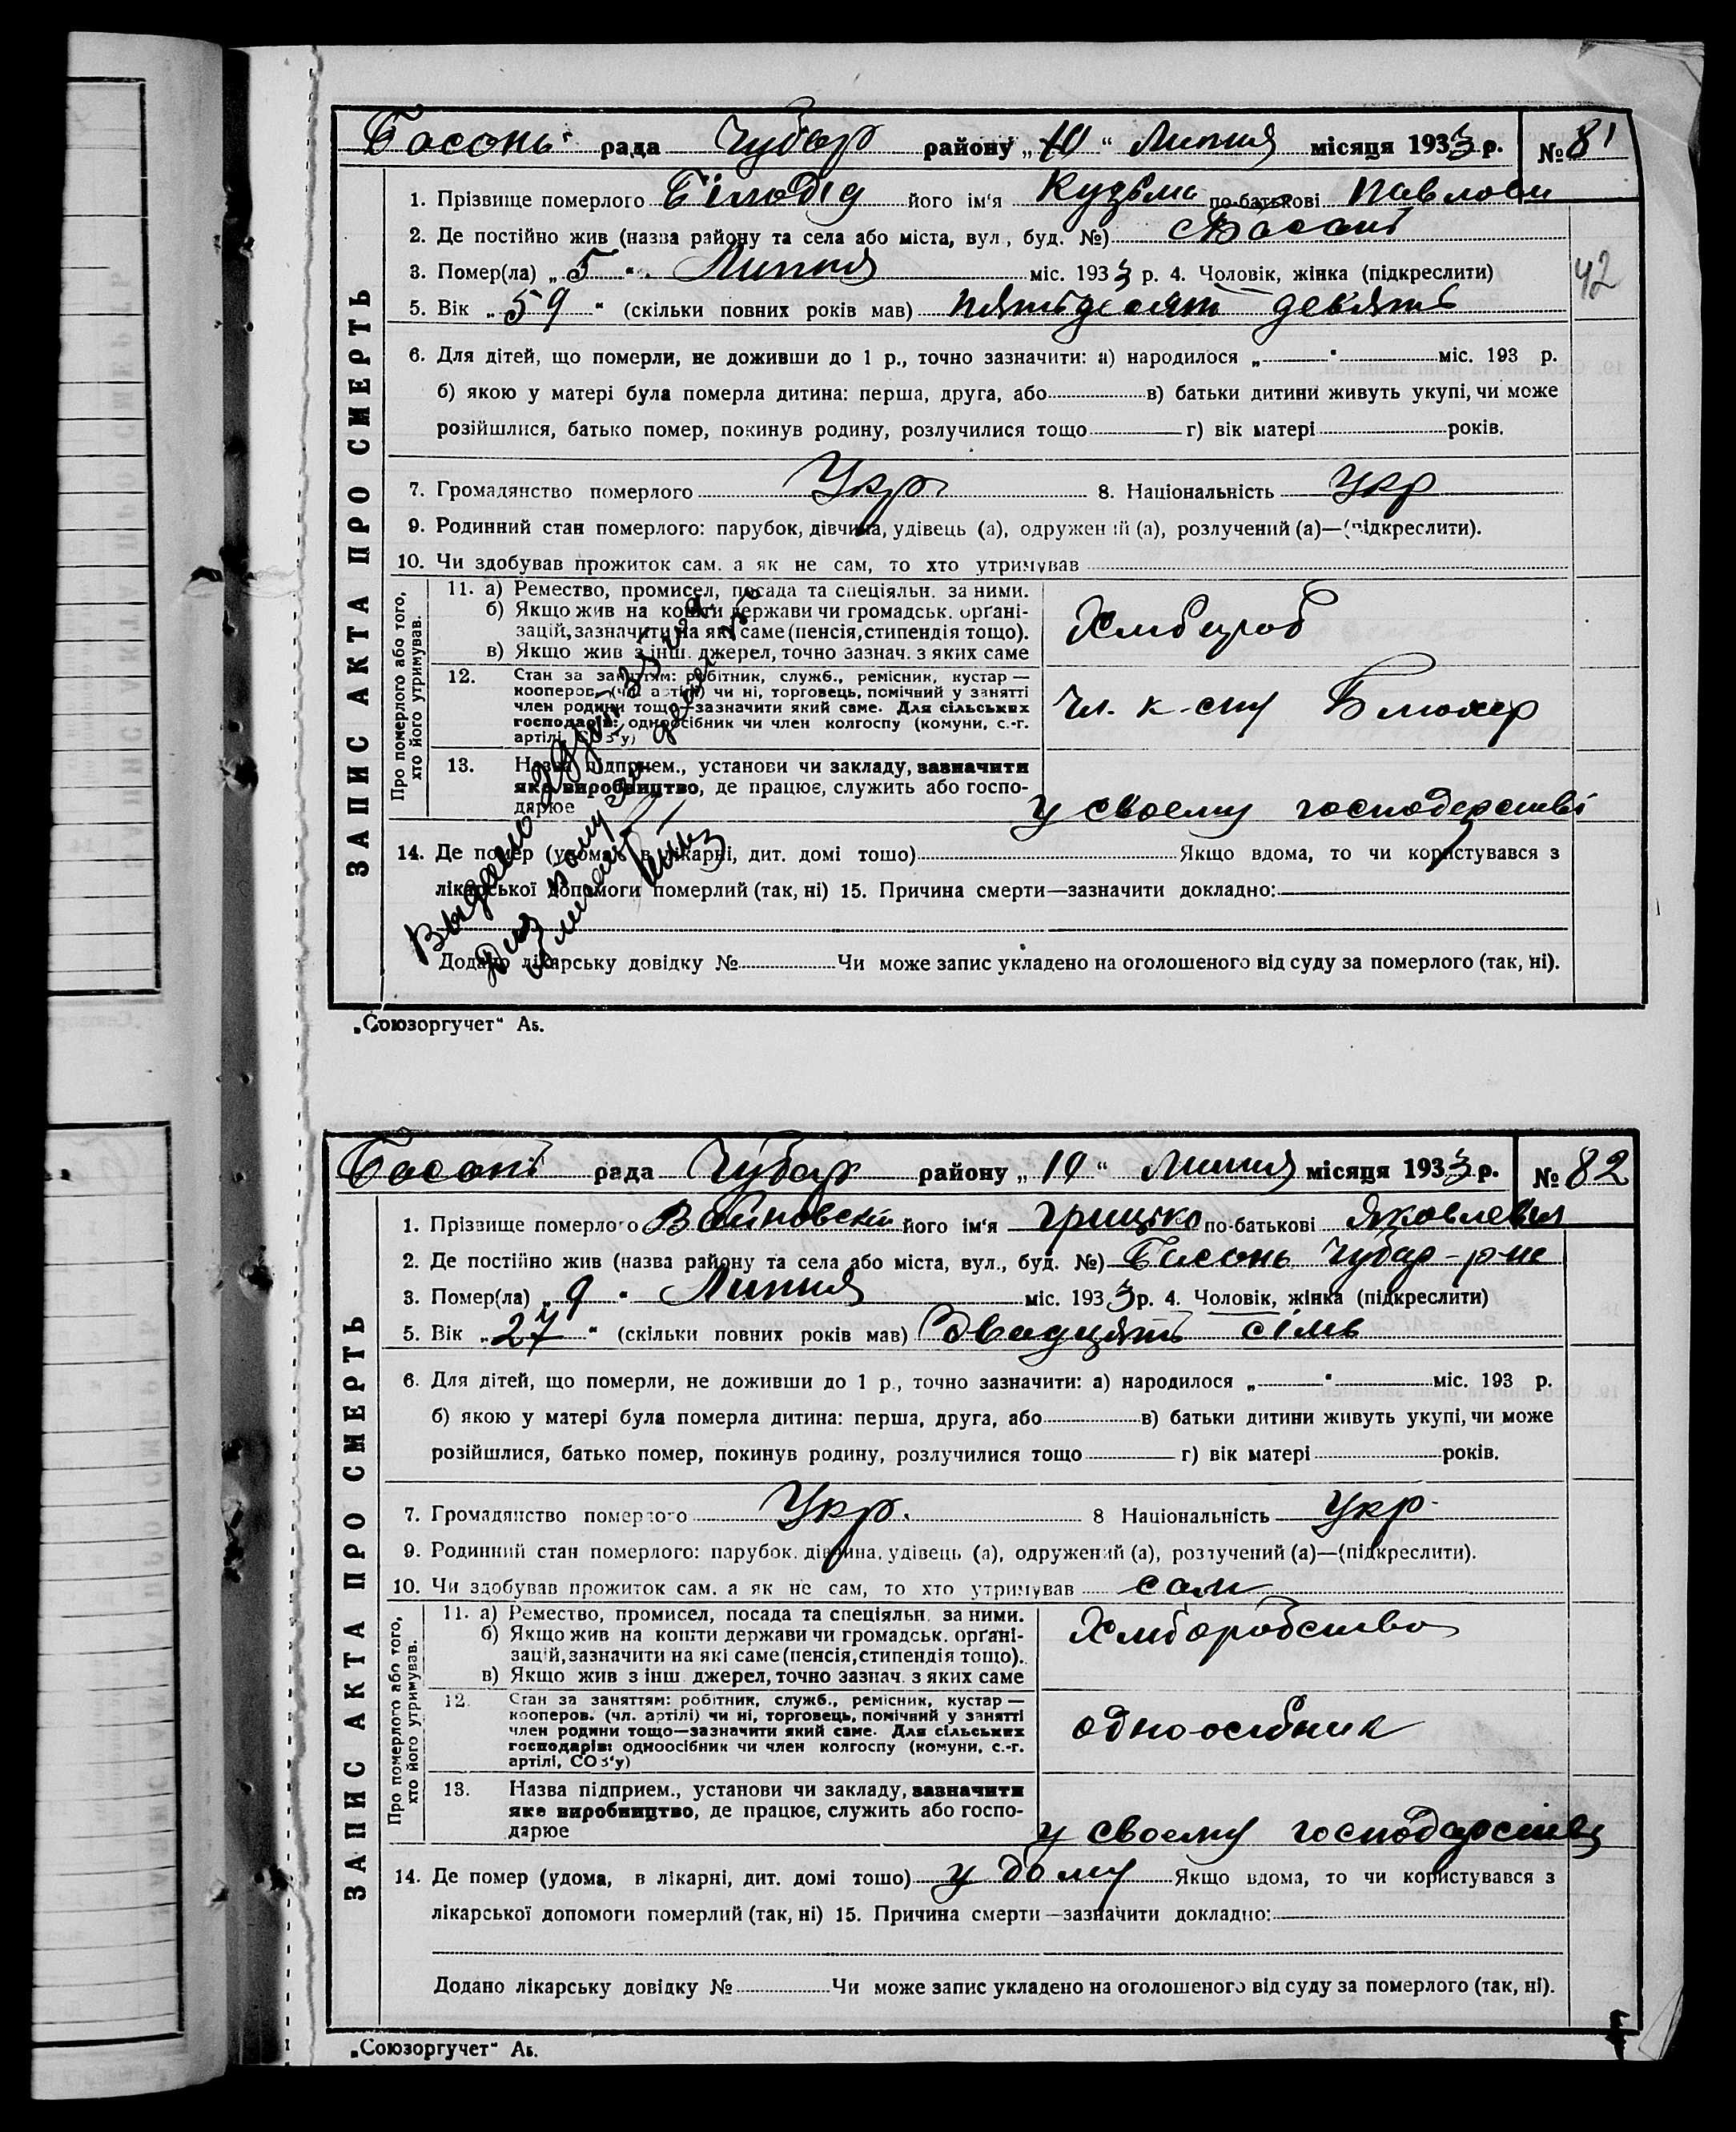 Басань рада Чубар району „10“ Липня місяця 1933 р. № 81
ЗАПИС АКТА ПРО СМЕРТЬ
1. Прізвище померлого Білодід його ім'я Кузьма по-батькові Павлови
2. Де постійно жив (назва району та села або міста, вул., буд. №) Басань
3. Помер(ла) „5“ Липня міс. 1933 р. 4. Чоловік, жінка (підкреслити)
42
5. Вік „59“ (скільки повних років мав) пятьдесят девять
6. Для дітей, що померли, не доживши до 1 р., точно зазначити: а) народилося „ “ міс. 193 р.
б) якою у матері була померла дитина: перша, друга, або в) батьки дитини живуть укупі, чи може
розійшлися, батько помер, покинув родину, розлучилися тощо г) вік матері років.
7. Громадянство померлого Укр 8. Національність Укр
9. Родинний стан померлого: парубок, дівчина, удівець (а), одружений (а), розлучений (а)—(підкреслити).
10. Чи здобував прожиток сам. а як не сам, то хто утримував
Про померлого або того, хто його утримував.
11. а) Ремество, промисел, посада та спеціяльн. за ними.
б) Якщо жив на кошти держави чи громадськ. орґані-
зацій, зазначити на які саме (пенсія, стипендія тощо).
в) Якщо жив з інш. джерел, точно зазнач. з яких саме
Хлибороб
12. Стан за заняттям: робітник, служб., ремісник, кустар—
кооперов. (чл. артілі) чи ні, торговець, помічний у занятті
член родини тощо—зазначити який саме. Для сільських
господарів: одноосібник чи член колгоспу (комуни, с.-г.
артілі, СОЗ'у)
Чл. к-спу Блюхер
13. Назва підприєм., установи чи закладу, зазначити
яке виробництво, де працює, служить або госпо-
дарює
у своему господарстві
14. Де помер (удома, в лікарні, дит. домі тощо) Якщо вдома, то чи користувався з
лікарської допомоги померлий (так, ні) 15. Причина смерти—зазначити докладно:
Додано лікарську довідку № Чи може запис укладено на оголошеного від суду за померлого (так, ні).
Выдано
„Союзоргучет“ А5.
Басань рада Чубар району „10“ Липня місяця 1933 р. № 82
ЗАПИС АКТА ПРО СМЕРТЬ
1. Прізвище померлого Войновскій його ім'я Грицько по-батькові Яковлевич
2. Де постійно жив (назва району та села або міста, вул., буд. №) Басань Чубар-р-не
3. Помер(ла) „9“ Липня міс. 1933 р. 4. Чоловік, жінка (підкреслити)
5. Вік „27“ (скільки повних років мав) двадцять сімь
6. Для дітей, що померли, не доживши до 1 р., точно зазначити: а) народилося „ “ міс. 193 р.
б) якою у матері була померла дитина: перша, друга, або в) батьки дитини живуть укупі, чи може
розійшлися, батько помер, покинув родину, розлучилися тощо г) вік матері років.
7. Громадянство померлого Укр. 8 Національність Укр-
9. Родинний стан померлого: парубок, дівчина, удівець (а), одружений (а), розлучений (а)—(підкреслити).
10. Чи здобував прожиток сам. а як не сам, то хто утримував сам
Про померлого або того, хто його утримував.
11. а) Ремество, промисел, посада та спеціяльн. за ними.
б) Якщо жив на кошти держави чи громадськ. орґані-
зацій, зазначити на які саме (пенсія, стипендія тощо).
в) Якщо жив з інш. джерел, точно зазнач. з яких саме
Хлиборобство
12. Стан за заняттям: робітник, служб., ремісник, кустар—
кооперов. (чл. артілі) чи ні, торговець, помічний у занятті
член родини тощо—зазначити який саме. Для сільських
господарів: одноосібник чи член колгоспу (комуни, с.-г.
артілі, СОЗ'у)
одноосібник
13. Назва підприєм., установи чи закладу, зазначити
яке виробництво, де працює, служить або госпо-
дарює
у своему господарстві
14. Де помер (удома, в лікарні, дит. домі тощо) у дому Якщо вдома, то чи користувався з
лікарської допомоги померлий (так, ні) 15. Причина смерти—зазначити докладно:
Додано лікарську довідку № Чи може запис укладено на оголошеного від суду за померлого (так, ні).
„Союзоргучет“ А5.